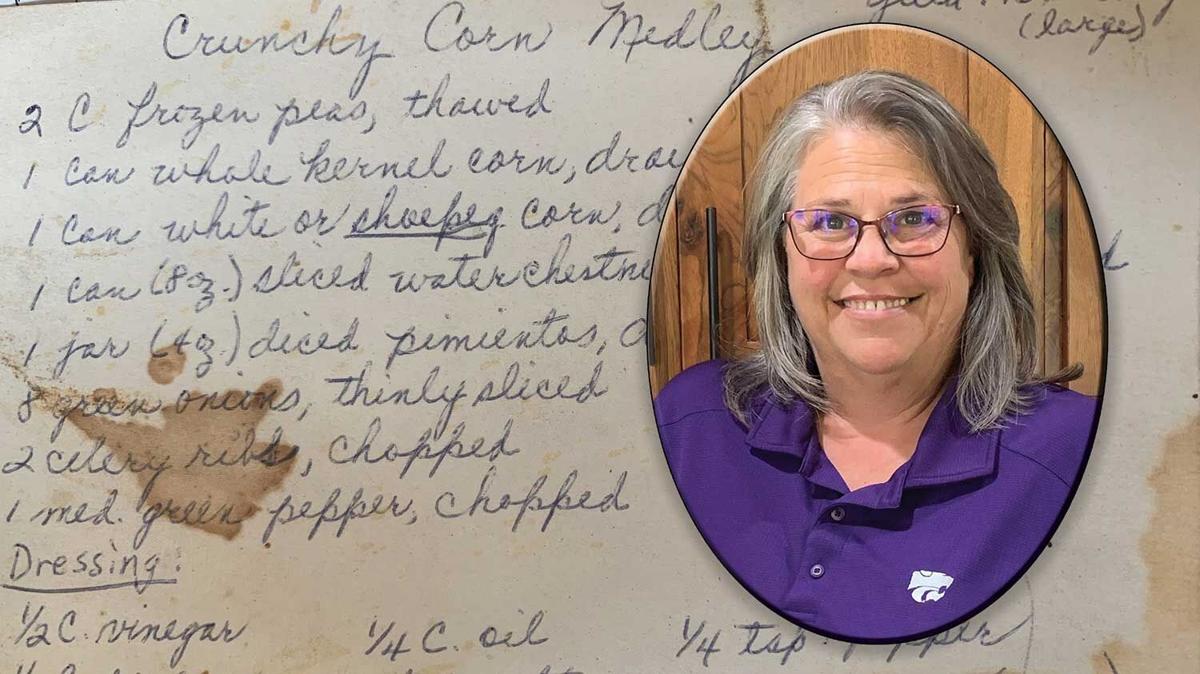 Crunchy Corn Medley
(large)
2 C. frozen peas, thawed
1 can whole kernel corn,
1 can white or shoepeg corn,
1 can (8 oz.) sliced water
1 jar (4 oz.) diced pimientos,
8 green onions, thinly sliced
2 celery ribs, chopped
1 med. green pepper, chopped
Dressing:
1/2 C. vinegar 1/4 C. oil 1/4 tsp. pepper